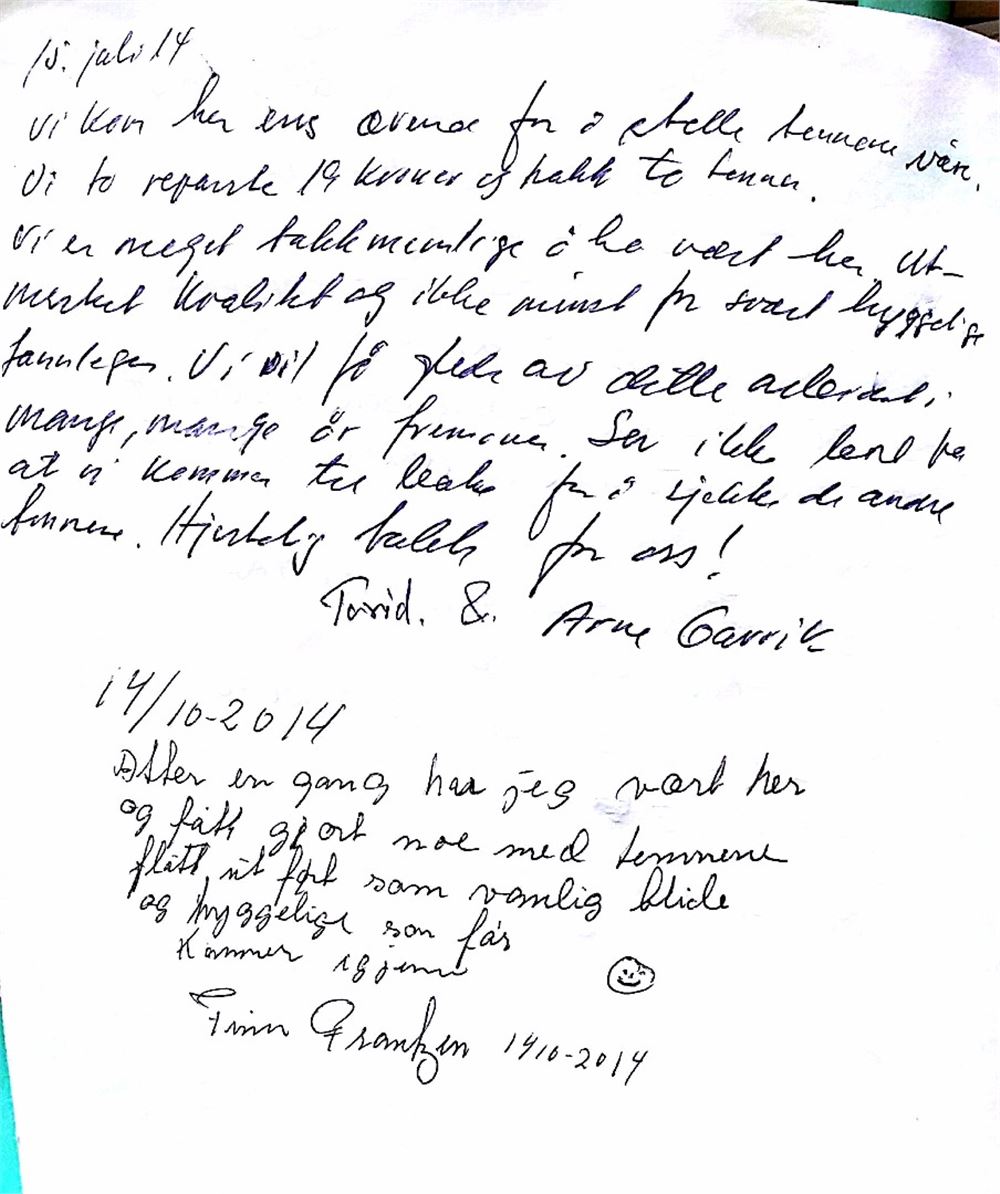 15. juli 14
Vi kom her ens ærend for å stelle tennene våre.
Vi to reparerte 19 kroner og trakk to tenner.
Vi er meget takknemlige å ha vært her. Ut-
merket kvalitet og ikke minst for svært hyggelige
tannleger. Vi vil få glede av dette arbeidet i
mange, mange år fremover. Ser ikke bort fra
at vi kommer tilbake for å sjekke de andre
tennene. Hjertelig takk for oss!
Torid. & Arne Garvik
14/10-2014
Atter en gang har jeg vært her
og fått gjort noe med tennene
flått ut ført som vanlig blide
og hyggelige som før
Kommer igjenn
Finn Frantzen 1410-2014